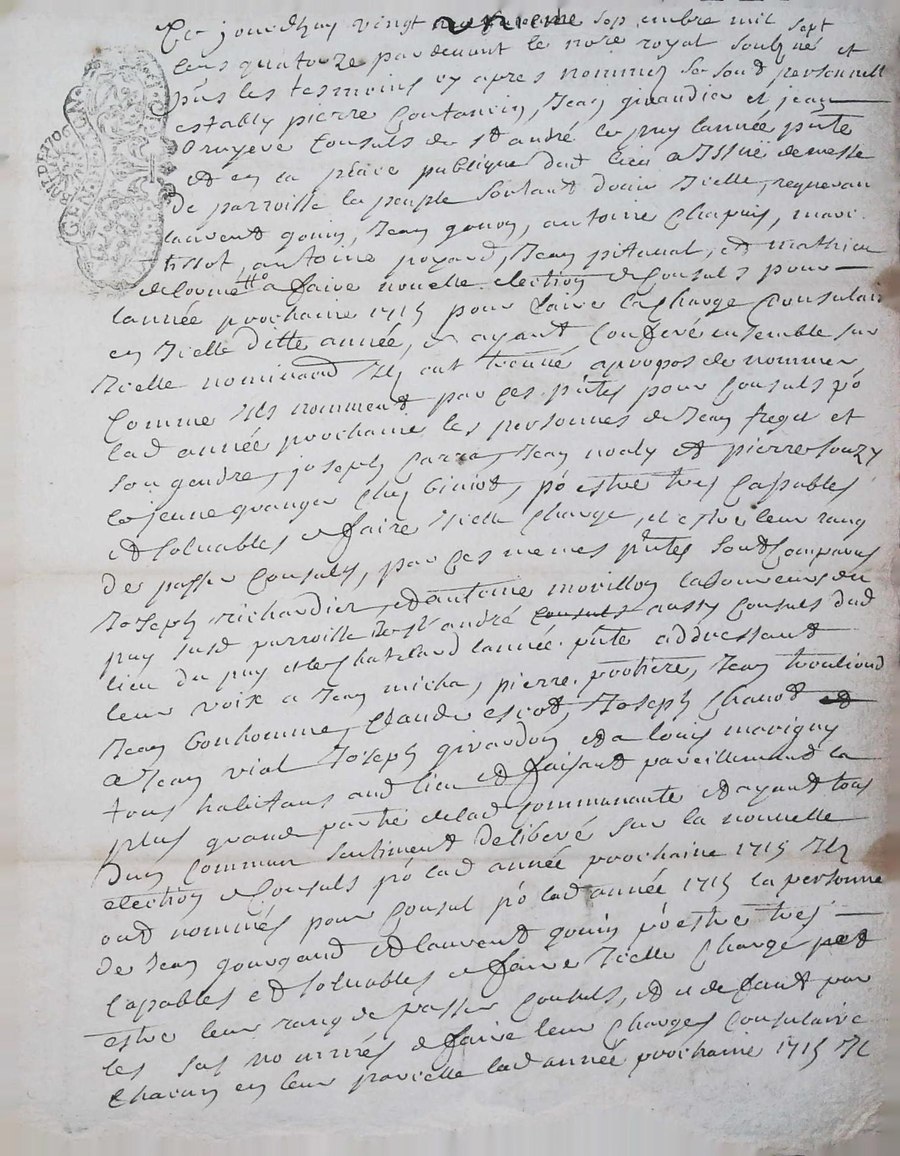 Ce jourdhuy vingt septembre mil sept
cens quatorze par devant le nore royal soubsné et
pñs les tesmoins cy apres nommés se sont personnell
estably pierre Coutancin, Jean girardier et jean
Bruyere Consuls de st andré le puy lannée pñte
et en la place publique dud lieu a Issuë de messe
de parroisse le peuple sortant dicelle, requeran
laurent gonin, Jean gonon, antoine Chapuis, mari
tissot antoine poyard, Jean pitaval, et mathieu
delorme a faire nouvelle election de Consuls pour
lannée prochaine 1715 pour faire la Charge Consulair
en Icelle ditte année, et ayant Conferé ensemble sur
Icelle nomination Ils ont trouvé apropos de nommer
Comme Ils nomment par ces pñtes pour Consuls po
lad année prochaine les personnes de Jean fregu et
son gendre, joseph Carra, Jean noaly et pierre souzy
le jeune granger Chez biniot, po estre tres Capables
et solvables de faire Icelle Charge, et estre leur rang
de passer Consuls, par ces memes pñtes sont Comparus
Joseph richardier, et antoine morillon laboureurs du
puy susd parroisse de st andré consuls aussy Consuls dud
lieu du puy et le Chatelard lannée pñte addressant
leur voix a Jean micha, pierre potiere, Jean trouliond
Jean bonhomme, Claude escot, Joseph Chavot et
a Jean vial Joseph girardon et a louis marigny
tous habitans aud lieu et faisant pareillement la
plus grande partie de lad Communauté et ayant tous
dun Commun sentiment deliberé sur la nouvelle
election de Consuls po lad année prochaine 1715 Ils
ont nommés pour Consul po lad année 1715 la personne
de Jean gourgaud et laurent gonin po estre tres
Capables et solvables de faire Icelle Charge et
estre leur rang de passer Consuls, et a defaut par
les sus nommés de faire leur Charges Consulaire
Chacun en leur parcelle lad année prochaine 1715 Il
GEN. DE LYON